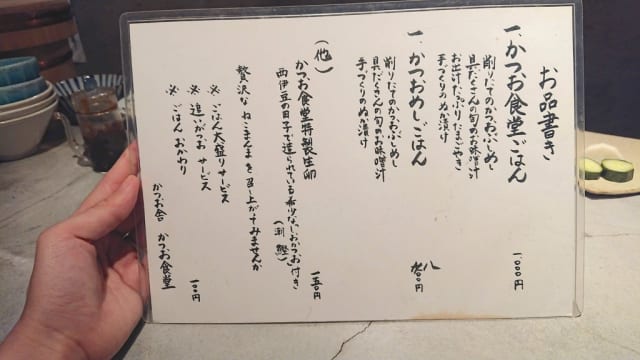 お品書き
一、かつお食堂ごはん 一、〇〇〇円
削りたてのかつおぶしめし
具だくさんの旬のお味噌汁
お出汁たっぷりたまごやき
手づくりのぬか漬け
一、かつおめしごはん 八〇〇円
削りたてのかつおぶしめし
具だくさんの旬のお味噌汁
手づくりのぬか漬け
(他)
かつお食堂特製生卵 一五〇円
西伊豆の田子で造られている希少な「しおかつお」付き
(潮鰹)
贅沢なねこまんまを召し上がってみませんか
※ごはん大盛りサービス
※追いがつおサービス
※ごはんおかわり 一〇〇円
かつお舎 かつお食堂